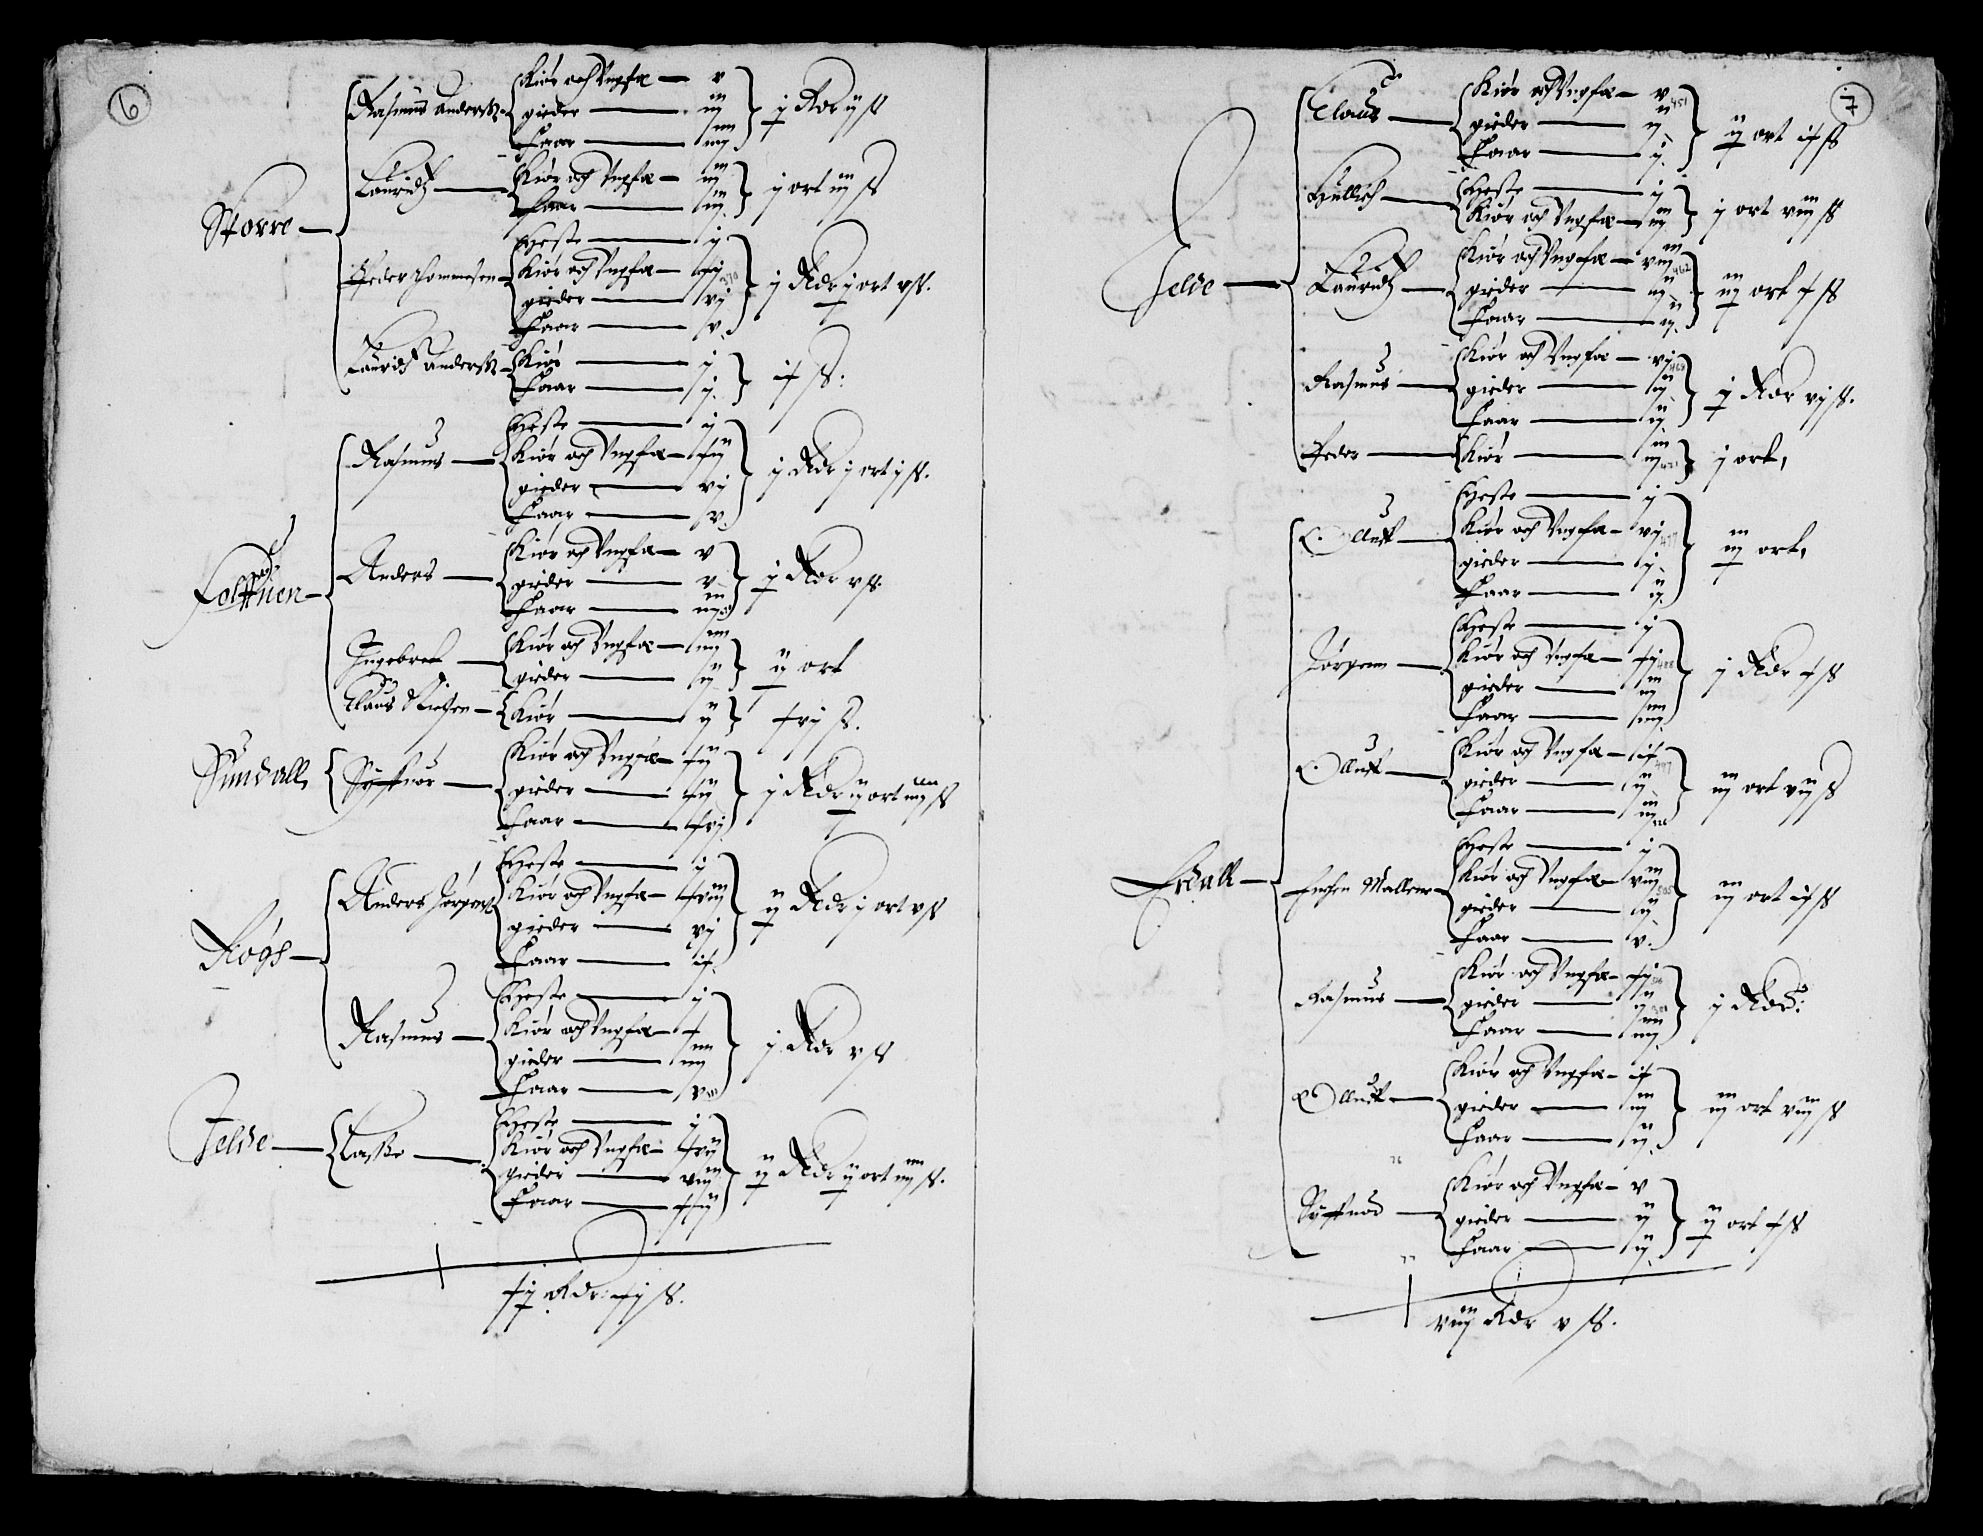 6
Storre
Rasmus Anderss:
Kiør och Ungfæ v
gieder iij
Faar iiij
j Rdr ij ß
Lauridz
Kiør och Ungfæ iij
Faar iij
j ort iij ß
Peder Tommesen
Heste j
Kiør och Ungfæ xj
gieder vj
Faar v
370
j Rdr j ort v ß.
Lauridz Anderss:
Kiør j
Faar j
ix ß:
Rasmus
Heste j
Kiør och Ungfæ xij
gieder vj
Faar v.
j Rdr j ort j ß.
Anders
Kiør och Ungfæ v
gieder v
Faar iij
j Rdr v ß.
Ingebret
Kiør och Ungfæ iiij
gieder ij
ij ort
Claus Nielsen
Kiør ij
xvj ß.
Sundall
Syffuor
Kiør och Ungfæ xij
gieder xij
Faar xvj
j Rdr ij ort iiij ß
Høgs
Anders Jørgens:
Heste j
Kiør och Ungfæ xviij
gieder vj
Faar ix.
ij Rdr j ort v ß
Rasmus
Heste j
Kiør och Ungfæ x
gieder iiij
Faar v
j Rdr v ß
Jelde
Lasse
Heste j
Kiør och Ungfæ xvij
gieder viij
Faar xij
ij Rdr ij ort iiij ß.
xij Rdr: xj ß.
7
Jelde
Claus
Kiør och Ungfæ v
gieder ij
Faar j.
451
ij ort ix ß
Heste j
Kiør och Ungfæ iij
j ort viij ß
Lauridz
Kiør och Ungfæ viij
gieder ij
Faar ij
462
iij ort x ß
Rasmus
Kiør och Ungfæ vj
gieder ij
Faar ij
j Rdr vj ß.
Peder
Kiør iij
j ort,
Erdall
Olluff
Heste j
Kiør och Ungfæ vj
gieder j
Faar ij
477
iij ort,
Jørgenn
Heste j
Kiør och Ungfæ xj
gieder iij
Faar iiij
488
j Rdr x ß
Olluff
Kiør och Ungfæ ix
gieder ij
Faar iij
497
iij ort vij ß
Heste j
Kiør och Ungfæ viij
gieder ij
Faar v.
505
iij ort ix ß
Rasmus
Kiør och Ungfæ xj
gieder ij
Faar iiij
j Rdr:
Olluff
Kiør och Ungfæ ix
gieder iij
Faar ij
iij ort viij ß
Kiør och Ungfæ v
gieder ij
Faar ij
ij ort x ß
viij Rdr v ß.